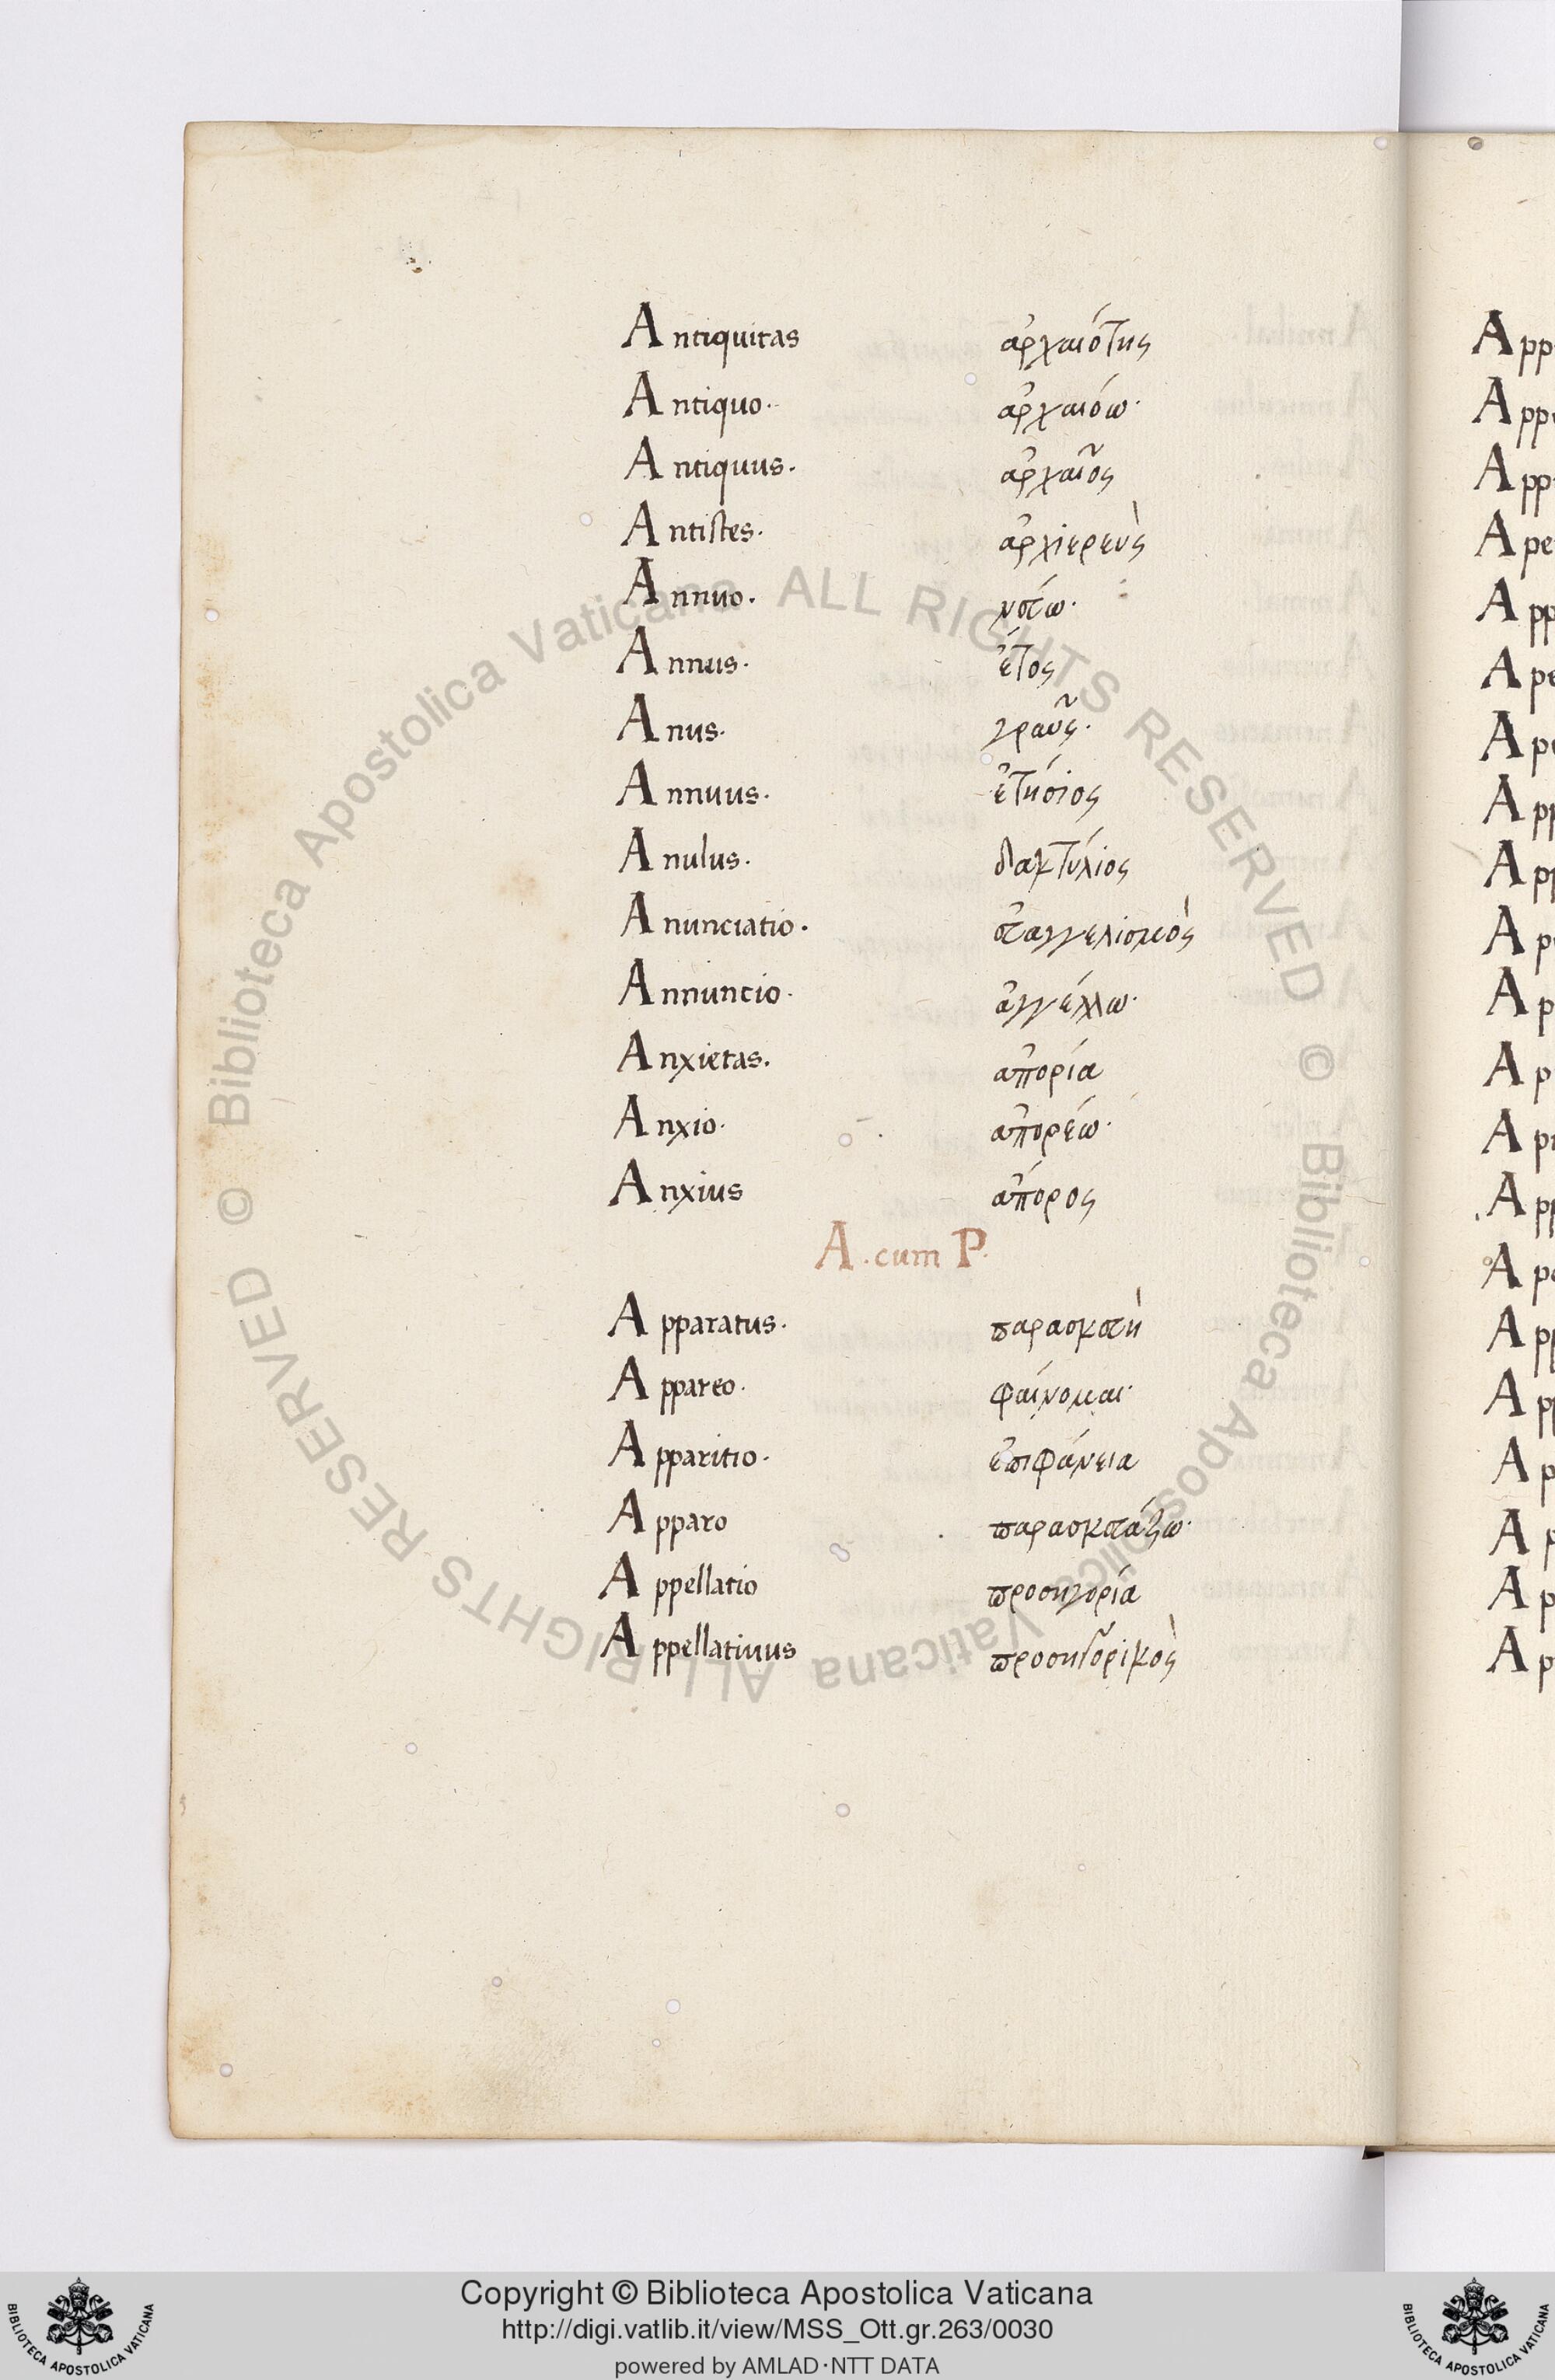 Antiquitas ἀρχαιότης
Antiquo. ἀρχαιόω.
Antiquus. ἀρχαῖος
Antistes. ἀρχιερεὺς
Annuo. νεύω.
Annus. ἔτος
Anus. γραῦς.
Annuus. ἐτήσιος
Anulus. δακτύλιος
Anunciatio. εὐαγγελισμὸς
Annuncio. ἀγγέλλω.
Anxietas. ἀπορία
Anxio. ἀπορέω.
Anxius ἄπορος
A. cum P.
Apparatus. παρασκευὴ
Appareo. φαίνομαι.
Apparitio. ἐπιφάνεια
Apparo παρασκευάζω.
Appellatio προσηγορία
Appellatiuus προσηγορικὸς
Copyright © Biblioteca Apostolica Vaticana
http://digi.vatlib.it/view/MSS_Ott.gr.263/0030
powered by AMLAD·NTT DATA
BIBLIOTECA APOSTOLICA VATICANA
BIBLIOTECA APOSTOLICA VATICANA
© Biblioteca Apostolica Vaticana ALL RIGHTS RESERVED
© Biblioteca Apostolica Vaticana ALL RIGHTS RESERVED